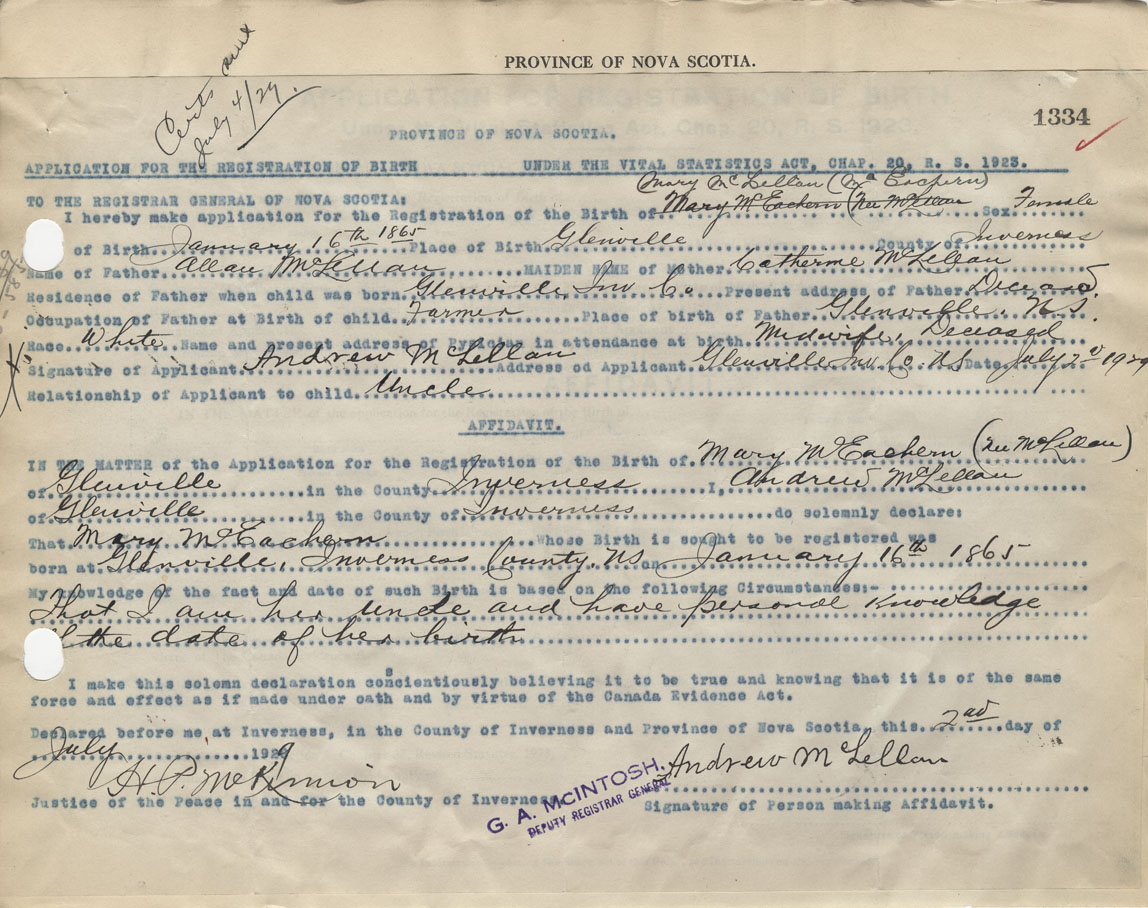 PROVINCE OF NOVA SCOTIA.
Certs sent
July 4/29.
1334
PROVINCE OF NOVA SCOTIA.
APPLICATION FOR THE REGISTRATION OF BIRTH UNDER THE VITAL STATISTICS ACT, CHAP. 20, R. S. 1923.
Mary McLellan (McEachern)
TO THE REGISTRAR GENERAL OF NOVA SCOTIA:
I hereby make application for the Registration of the Birth of Mary McEachern (Nee McLellan Sex Female
of Birth January 16th 1865 Place of Birth Glenville County of Inverness
Name of Father Allan McLellan MAIDEN NAME of Mother Catherine McLellan
Residence of Father when child was born Glenville Inv Co. Present address of Father Deceased
Occupation of Father at Birth of child Farmer Place of birth of Father Glenville, N.S.
Race White Name and present address of Physician in attendance at birth Midwife, Deceased
Signature of Applicant Andrew McLellan Address od Applicant Glenville Inv. Co. NS Date July 2nd 1929
Relationship of Applicant to child Uncle
AFFIDAVIT.
IN THE MATTER of the Application for the Registration of the Birth of Mary McEachern (Nee McLellan)
of Glenville in the County Inverness I, Andrew McLellan
of Glenville in the County of Inverness do solemnly declare:
That Mary McEachern whose Birth is sought to be registered was
born at Glenville, Inverness County, NS on January 16th 1865
My knowledge of the fact and date of such Birth is based on the following Circumstances:-
That I am her Uncle and have personal knowledge
of the date of her birth
I make this solemn declaration conscientiously believing it to be true and knowing that it is of the same
force and effect as if made under oath and by virtue of the Canada Evidence Act.
Declared before me at Inverness, in the County of Inverness and Province of Nova Scotia, this 2nd day of
July 1929
H. P. McKinnon
Andrew McLellan
Justice of the Peace in and for the County of Inverness
Signature of Person making Affidavit.
G. A. MCINTOSH.
DEPUTY REGISTRAR GENERAL